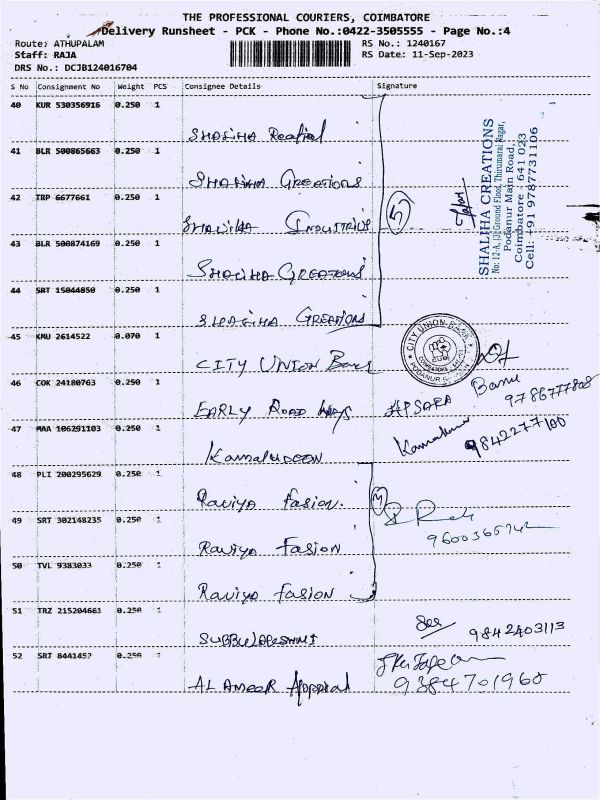 THE PROFESSIONAL COURIERS, COIMBATORE
Delivery Runsheet - PCK - Phone No.:0422-3505555 - Page No.:4
Route: ATHUPALAM RS No.: 1240167
Staff: RAJA RS Date: 11-Sep-2023
DRS No.: DCJB124016704
S No Consignment No Weight PCS Consignee Details Signature
40 KUR 530356916 0.250 1
SHALIHA
41 BLR 500865663 0.250 1
SHALIHA CREATIONS
42 TRP 6677661 0.250 1
SHALIHA INDUSTRIES
43 BLR 500874169 0.250 1
SHALIHA CREATIONS
44 SRT 15044850 0.250 1
SHALIHA CREATIONS
5
SHALIHA CREATIONS
No: 12-A, Ground Floor, Thirumarai Nagar,
Podanur Main Road,
Coimbatore - 641 023
Cell: +91 9787731106
45 KMU 2614522 0.070 1
CITY UNION Bank
CITY UNION BANK
PODANUR
46 COK 24180763 0.250 1
EARLY ROAD WAYS APSARA Banu
9786777808
47 MAA 106291103 0.250 1
KAMALUDEEN
9842277100
48 PLI 200295629 0.250 1
Raviya Fasion.
3
49 SRT 302148235 0.250 1
Raviya Fasion
9600365742
50 TVL 9383033 0.250 1
Raviya Fasion
51 TRZ 215204661 0.250 1
SUBBULAKSHMI
9842403113
52 SRT 8441452 0.250 1
AL AMEER Apparal
9384701960